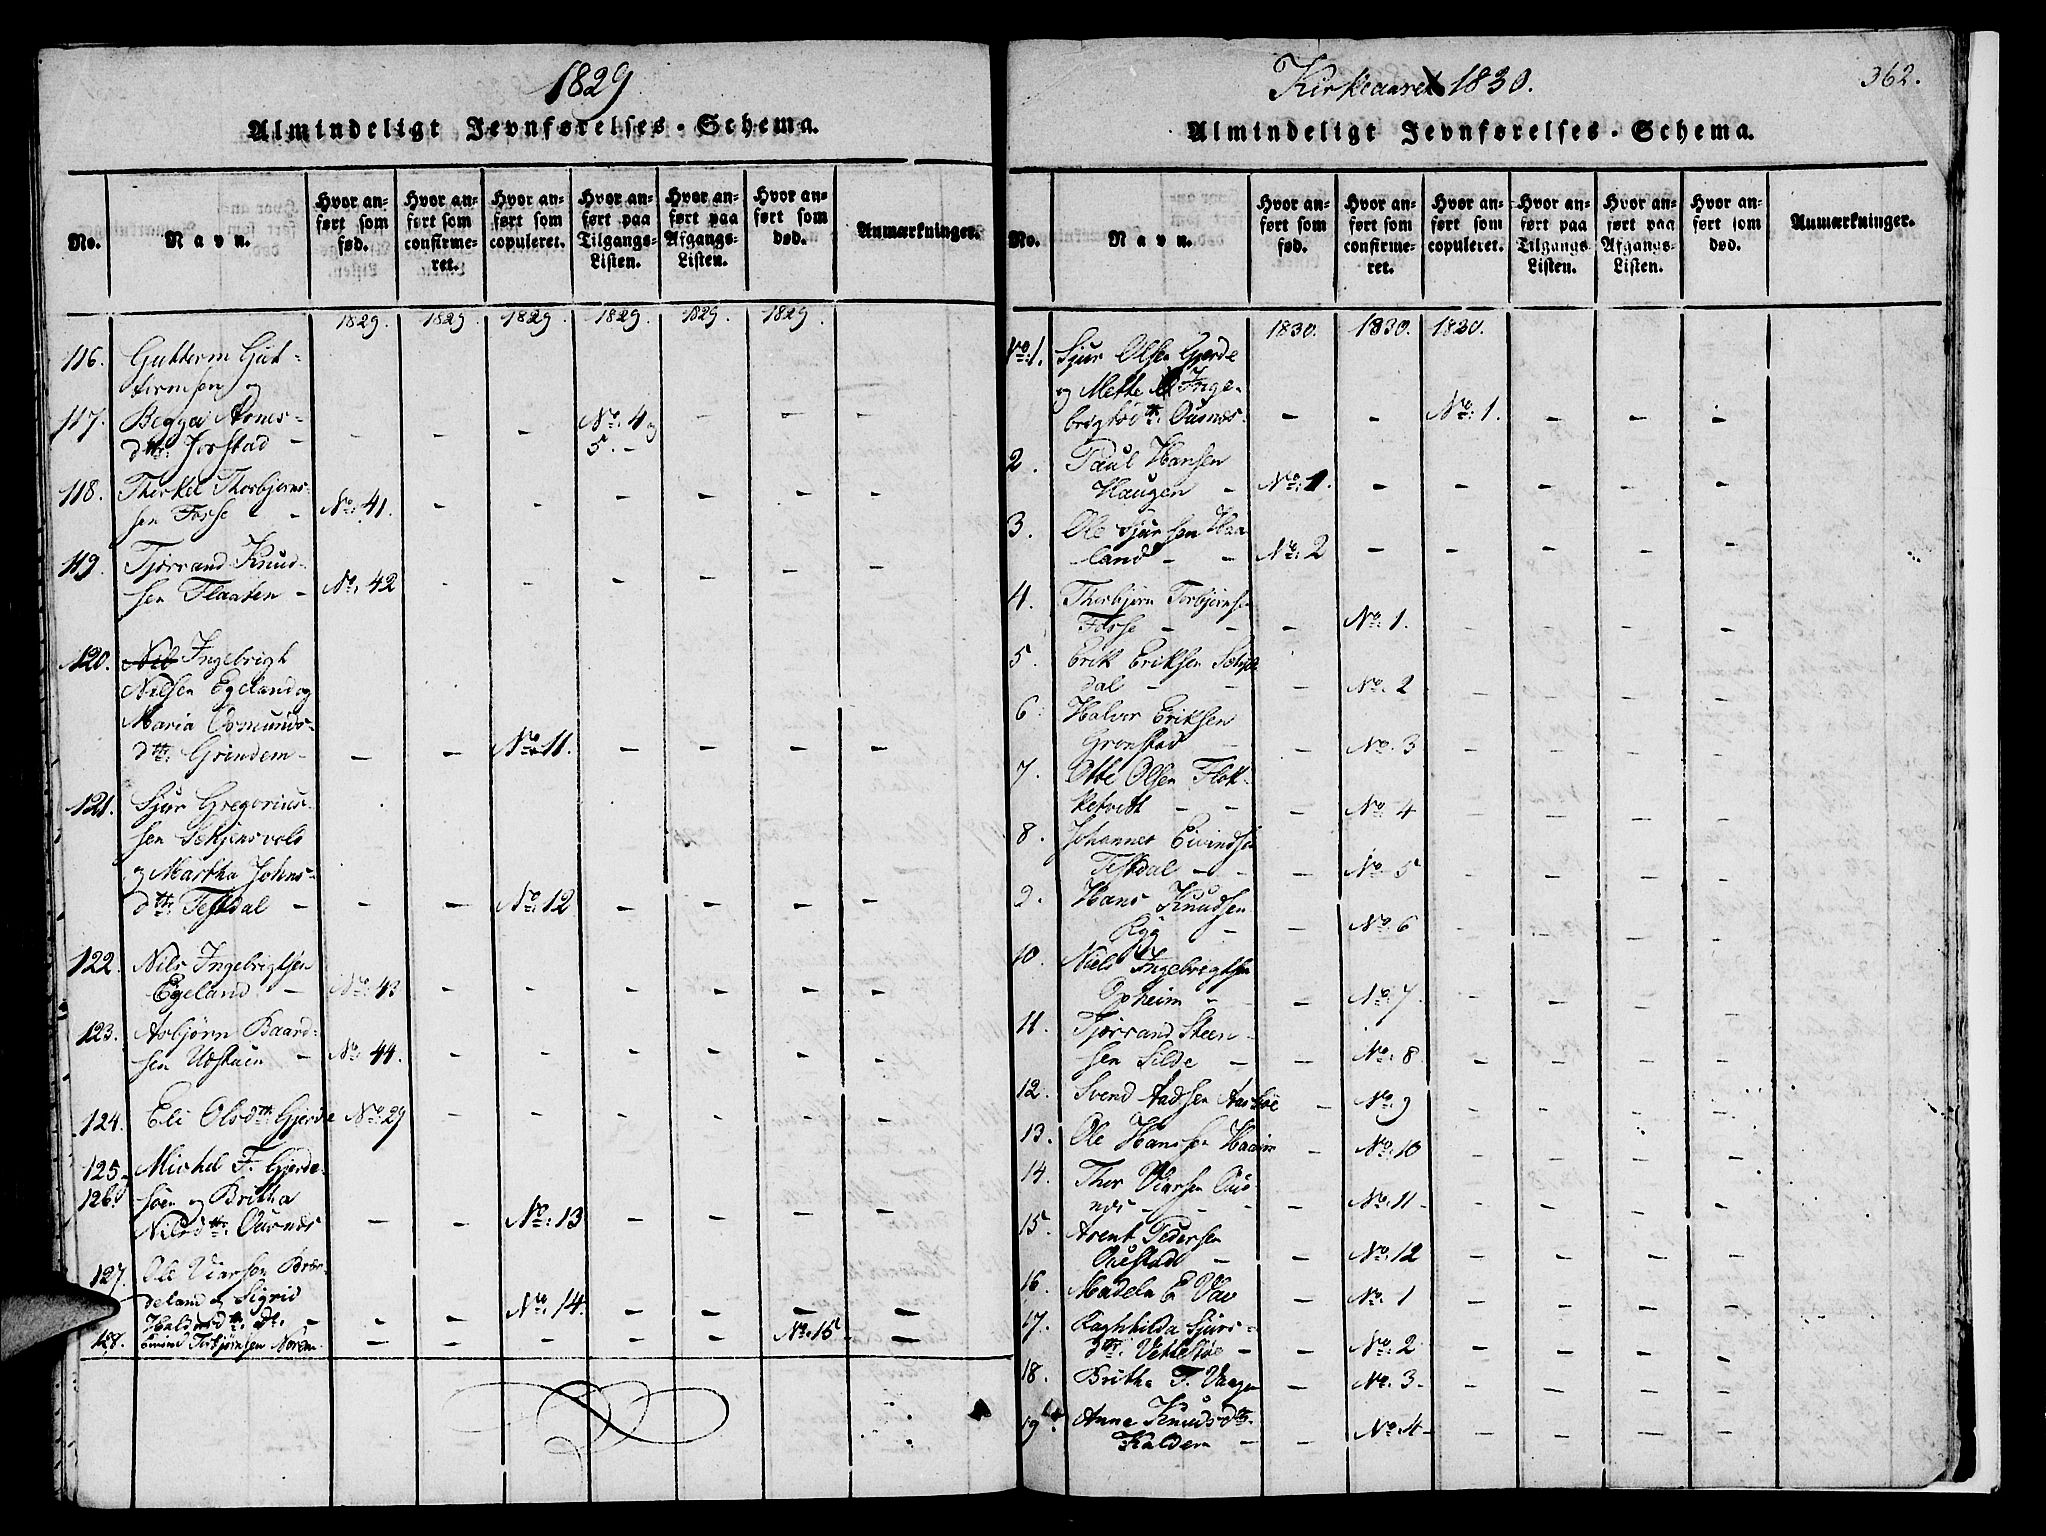 1829
Almindeligt Jevnførelses-Schema.
No.
Navn.
Hvor anført som fød.
Hvor anført som confirmeret.
Hvor anført som copuleret.
Hvor anført paa Tilgangs-Listen.
Hvor anført paa Afgangs-Listen.
Hvor anført som død.
Anmærkninger.
1829. 1829. 1829. 1829. 1829. 1829.
116. Gutterm Gut-
termsen og
117. Begga Aoms- - - - No: 4 og - -
dttr: Jorstad - 5. -
118. Therkel Thorbjørns-
sen Fosse - - No: 41. - - - - -
119. Tjerrand Knud-
sen Flaaten - No: 42 - - - - -
120. Ingebrigt
Nielsen Egeland og
Maria Osmunds-
dttr: Grindem - - - No: 11. - - -
121. Sjur Gregorius-
sen
og Martha Johns-
dttr: Tesdal - - - No: 12 - - -
122. Nils Ingebrigtsen
Egeland - No: 43 - - - - -
123. Asbjørn Baard-
sen - No: 44. - - - - -
124. Eli Olsdttr: Gjerde No: 29 - - - - -
125 Michel F. Gjerde-
126. søen og Britha
Nilsdttr: Ousnæs - - No: 13 - - -
127. Ole Viarsen Bræ-
deland og Sigrid
dttr: do. - - - No: 14. - - - -
128. Eivind Torbjørnsen - - - - - No: 15 -
Kirkeaaret 1830. 362.
Almindeligt Jevnførelses-Schema.
No.
Navn.
Hvor anført som fød.
Hvor anført som confirmeret.
Hvor anført som copuleret.
Hvor anført paa Tilgangs Listen.
Hvor anført paa Afgangs Listen.
Hvor anført som død.
Anmærkninger.
1830. 1830. 1830.
No: 1. Sjur Olsen Gjerde
og Mette Inge-
brigtsdttr: Ousnæs - - - No: 1. - - -
2. Paul Hansen
Haugen - No: 1. - - - - -
3. Ole Sjursen Haa-
land - - No: 2 - - - - -
4. Thorbjørn Torbjørnsen
Fosse - - - No: 1. - - - -
5. Erik Eriksen
dal - - - No: 2 - - - -
6. Halvor Eriksen
Grønstad - - No: 3 - - - -
7. Otte Olsen Flok-
ketveit - - - No: 4 - - - -
8. Johannes Eivindsen
Tesdal - - - No: 5 - - - -
9. Hans Knudsen
Rygg - - No: 6 - - - -
10. Niels Ingebrigtsen
Opheim - - No: 7. - - - -
11. Tjerrand Steen-
sen Silde - - No: 8 - - - -
12. Svend Aadsen - No: 9 - - - -
13. Ole Hansen - No: 10 - - - -
14. Thor Viarsen Ous-
næs - - - - No: 11 - - - -
15. Arent Pedersen
- - No: 12 - - - -
16. Madela E - No: 1 - - - -
17. Ragnhilda Sjurs-
dttr: - - No: 2 - - - -
18. Britha T. Vaage - No: 3 - - - -
19. Anne Knudsdttr:
Kalder - - No: 4 - - - -